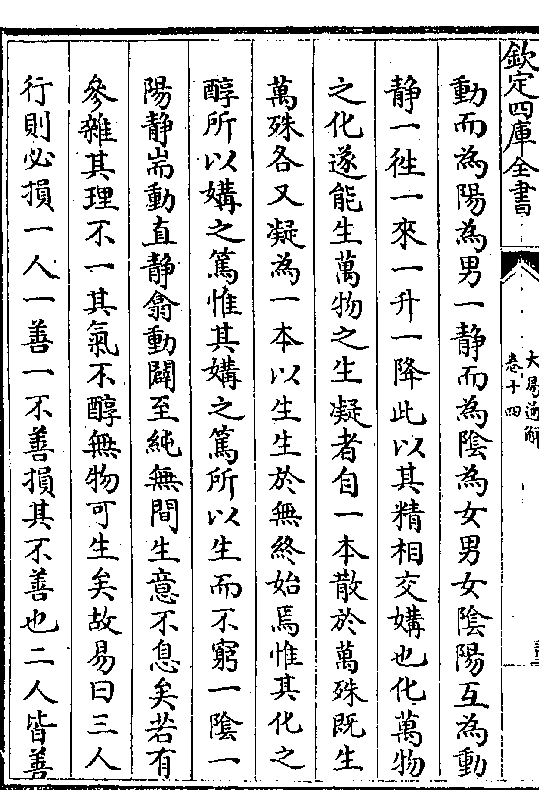 欽定四庫全書
大易通解
卷十四
動而為陽為男一静而為陰為女男女陰陽互為動
静一徃一來一升一降此以其精相交媾也化萬物
之化遂能生萬物之生凝者自一本散於萬殊既生
萬殊各又凝為一本以生生於無終始焉惟其化之
醇所以媾之篤惟其媾之篤所以生而不窮一陰一
陽静耑動直静翕動闢至純無間生意不息矣若有
參雜其理不一其氣不醇無物可生矣故易曰三人
行則必損一人一善一不善損其不善也二人皆善